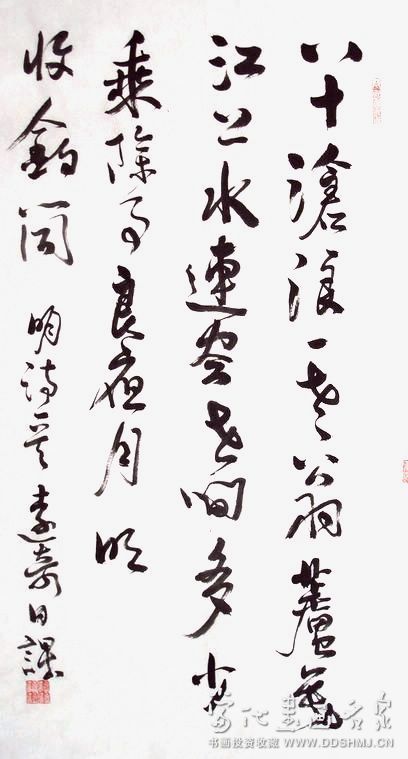 八十滄浪一老翁蘆花
江上水連空世间多少
乘除事良夜月明
收釣筒 明诗 日課
当代书画名家
书画投资收藏 WWW.DDSHMJ.CN